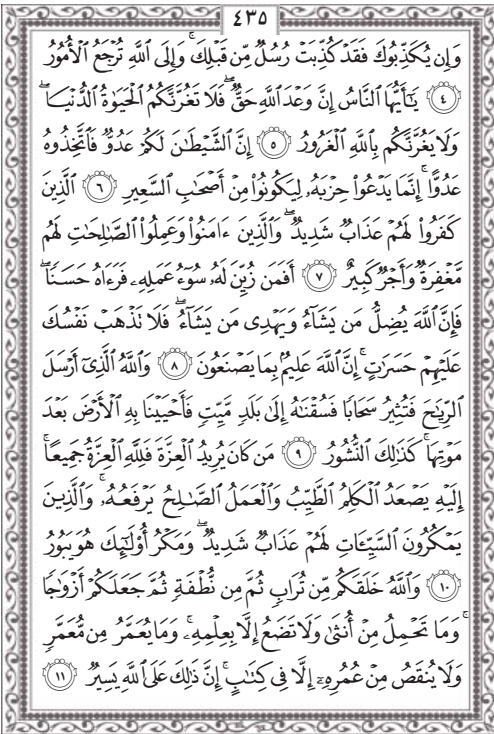 ٤٣٥
وَإِن يُكَذِّبُوكَ فَقَدْ كُذِّبَتْ رُسُلٌ مِّن قَبْلِكَ ۚ وَإِلَى ٱللَّهِ تُرْجَعُ ٱلْأُمُورُ
٤ يَٰٓأَيُّهَا ٱلنَّاسُ إِنَّ وَعْدَ ٱللَّهِ حَقٌّ ۖ فَلَا تَغُرَّنَّكُمُ ٱلْحَيَوٰةُ ٱلدُّنْيَا ۖ
وَلَا يَغُرَّنَّكُم بِٱللَّهِ ٱلْغَرُورُ ٥ إِنَّ ٱلشَّيْطَٰنَ لَكُمْ عَدُوٌّ فَٱتَّخِذُوهُ
عَدُوًّا ۚ إِنَّمَا يَدْعُوا۟ حِزْبَهُۥ لِيَكُونُوا۟ مِنْ أَصْحَٰبِ ٱلسَّعِيرِ ٦ ٱلَّذِينَ
كَفَرُوا۟ لَهُمْ عَذَابٌ شَدِيدٌ ۖ وَٱلَّذِينَ ءَامَنُوا۟ وَعَمِلُوا۟ ٱلصَّٰلِحَٰتِ لَهُم
مَّغْفِرَةٌ وَأَجْرٌ كَبِيرٌ ٧ أَفَمَن زُيِّنَ لَهُۥ سُوٓءُ عَمَلِهِۦ فَرَءَاهُ حَسَنًا ۖ
فَإِنَّ ٱللَّهَ يُضِلُّ مَن يَشَآءُ وَيَهْدِى مَن يَشَآءُ ۖ فَلَا تَذْهَبْ نَفْسُكَ
عَلَيْهِمْ حَسَرَٰتٍ ۚ إِنَّ ٱللَّهَ عَلِيمٌۢ بِمَا يَصْنَعُونَ ٨ وَٱللَّهُ ٱلَّذِىٓ أَرْسَلَ
ٱلرِّيَٰحَ فَتُثِيرُ سَحَابًا فَسُقْنَٰهُ إِلَىٰ بَلَدٍ مَّيِّتٍ فَأَحْيَيْنَا بِهِ ٱلْأَرْضَ بَعْدَ
مَوْتِهَا ۚ كَذَٰلِكَ ٱلنُّشُورُ ٩ مَن كَانَ يُرِيدُ ٱلْعِزَّةَ فَلِلَّهِ ٱلْعِزَّةُ جَمِيعًا ۚ
إِلَيْهِ يَصْعَدُ ٱلْكَلِمُ ٱلطَّيِّبُ وَٱلْعَمَلُ ٱلصَّٰلِحُ يَرْفَعُهُۥ ۚ وَٱلَّذِينَ
يَمْكُرُونَ ٱلسَّيِّـَٔاتِ لَهُمْ عَذَابٌ شَدِيدٌ ۖ وَمَكْرُ أُو۟لَٰٓئِكَ هُوَ يَبُورُ
١٠ وَٱللَّهُ خَلَقَكُم مِّن تُرَابٍ ثُمَّ مِن نُّطْفَةٍ ثُمَّ جَعَلَكُمْ أَزْوَٰجًا
ۚ وَمَا تَحْمِلُ مِنْ أُنثَىٰ وَلَا تَضَعُ إِلَّا بِعِلْمِهِۦ ۚ وَمَا يُعَمَّرُ مِن مُّعَمَّرٍ
وَلَا يُنقَصُ مِنْ عُمُرِهِۦٓ إِلَّا فِى كِتَٰبٍ ۚ إِنَّ ذَٰلِكَ عَلَى ٱللَّهِ يَسِيرٌ ١١